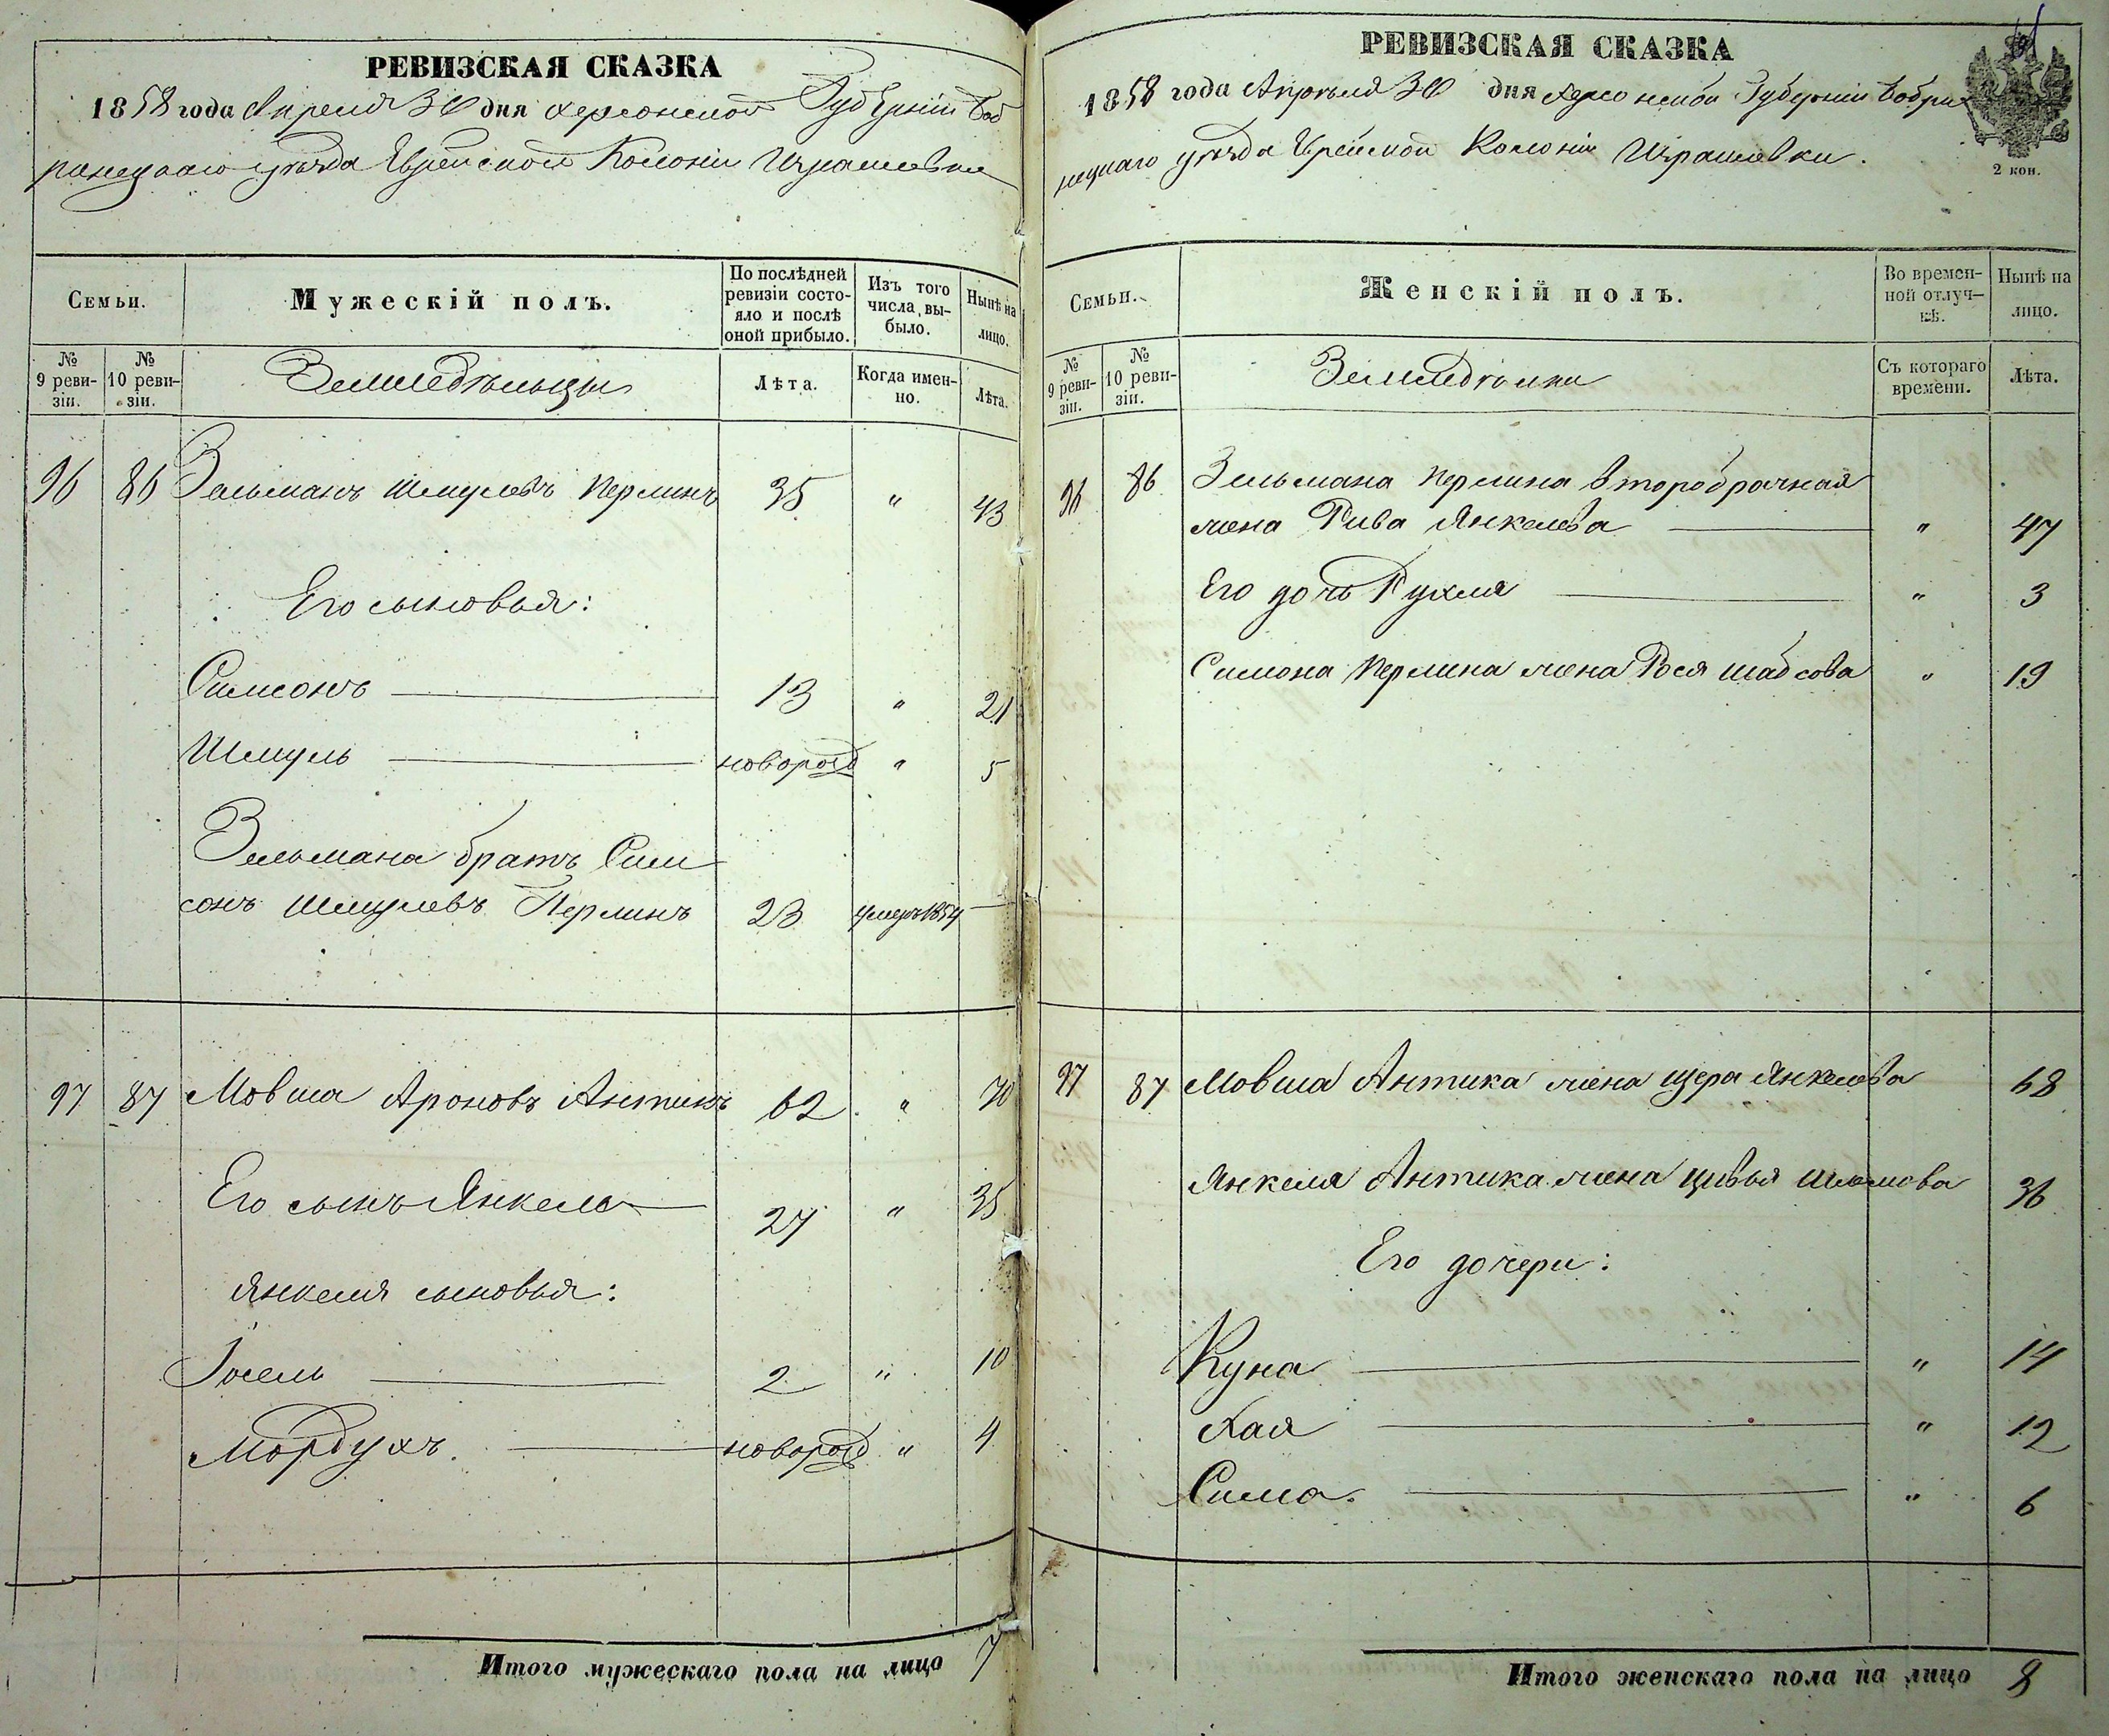 РЕВИЗСКАЯ СКАЗКА
1858 года Апреля 30 дня Херсонской Губерніи Боб
ринецкаго уѣзда Еврейской Колоніи Израилевки
Семьи.
Мужескій полъ.
По послѣдней ревизіи состояло и послѣ оной прибыло.
Изъ того числа выбыло.
Нынѣ на лицо.
№ 9 ревизіи.
№ 10 ревизіи.
Земледѣльцы
Лѣта.
Когда именно.
Лѣта.
96 86 Зельманъ Шмулевъ Перлинъ 35 " 43
Его сыновья:
Симсонъ 13 " 21
Шмуль новорожд " 5
Зельмана братъ Сим
сонъ Шмулевъ Перлинъ 23 умеръ 1854
97 87 Мовша Ароновъ Антикъ 62 " 70
Его сынъ Янкель 27 " 35
Янкеля сыновья:
Іосель 2 " 10
Мордухъ. новорожд " 4
Итого мужескаго пола на лицо 7
РЕВИЗСКАЯ СКАЗКА
1858 года Апрѣля 30 дня Херсонской Губерніи Бобри
нецкаго уѣзда Еврейской Колоніи Израилевки.
2 коп.
Семьи.
Женскій полъ.
Во временной отлучкѣ.
Нынѣ на лицо.
№ 9 ревизіи.
№ 10 ревизіи.
Земледѣлки
Съ котораго времени.
Лѣта.
96 86 Зельмана Перлина второбрачная
жена Рива Янкелева " 47
Его дочь Рухля " 3
Симона Перлина жена Рося Шабсова " 19
97 87 Мовша Антика жена Цера Янкелева 68
Янкеля Антика жена Цивья Шлемова 36
Его дочери:
Куна " 14
Хая " 12
Сима. " 6
Итого женскаго пола на лицо 8